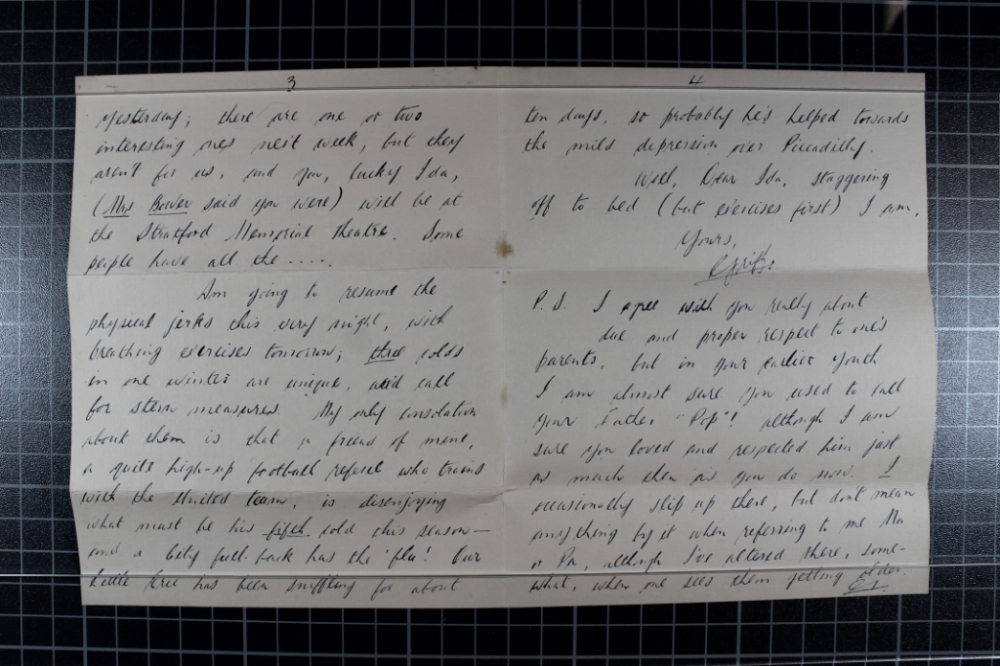 3
yesterday; there are one or two
interesting ones next week, but they
aren't for us, and you, lucky Ida,
(Mrs Bower said you were) will be at
the Stratford Memorial Theatre. Some
people have all the ....
Am going to resume the
physical jerks this very night, with
breathing exercises tomorrow; three colds
in one winter are unique, and call
for stern measures. My only consolation
about them is that a friend of mine,
a quite high-up football referee who trains
with the United team, is disenjoying
what must be his fifth cold this season—
and a City full-back has the 'flu! Our
little has been sniffling for about
4
ten days, so probably he's helped towards
the mild depression over Piccadilly.
Well, Dear Ida, staggering
off to bed (but exercises first) I am,
Yours,
P.S. I agree with you really about
due and proper respect to one's
parents, but in your earlier youth
I am almost sure you used to call
your Father "Pop"! although I am
sure you loved and respected him just
as much then as you do now. I
occasionally slip up there, but don't mean
anything by it when referring to me Ma
or Pa, although I've altered there, some-
what, when one sees them getting older.